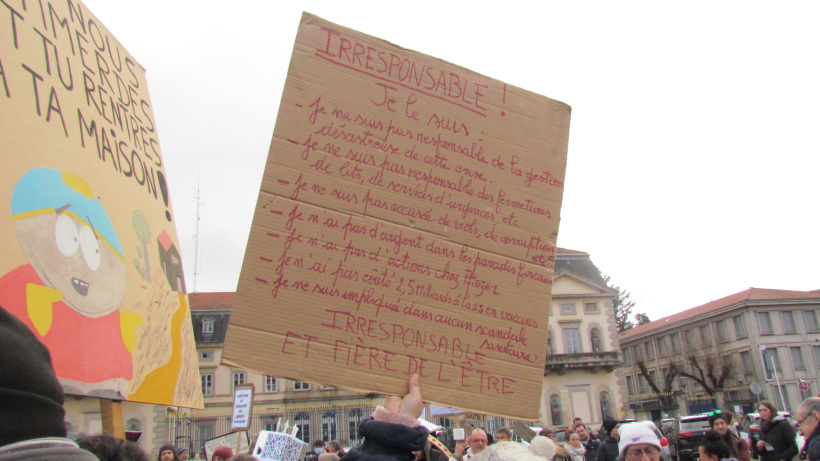 NOUS
T'IMERDES
T TU RENTRES
A TA MAISON !
IRRESPONSABLE !
Je le suis :
- Je ne suis pas responsable de la gestion
désastreuse de cette crise
- Je ne suis pas responsable des fermetures
de lits, de services d'urgences, etc
- Je ne suis pas accusée de viols, de corruption etc
- Je n'ai pas d'argent dans les paradis fiscaux
- Je n'ai pas d'actions chez Pfizer
- Je n'ai pas coûté 2,5 milliards à la ss en vaccins
- Je ne suis impliquée dans aucun scandale
sanitaire
IRRESPONSABLE
ET FIÈRE DE L'ÊTRE